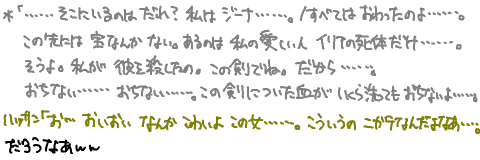 *「……そこにいるのは だれ？ 私は ジーナ……。/すべては おわったのよ……。
この先には 宝なんか ない。あるのは 私の愛しい人 イリアの死体だけ……。
そうよ。私が 彼を殺したの。この剣でね。だから……。
おちない…… おちない……。この剣についた血が いくら洗っても おちないよ……。
ハッサン「お… おいおい なんか こわいよ この女……。こういうの ニガテなんだよなあ…。
だろうなあｗｗ